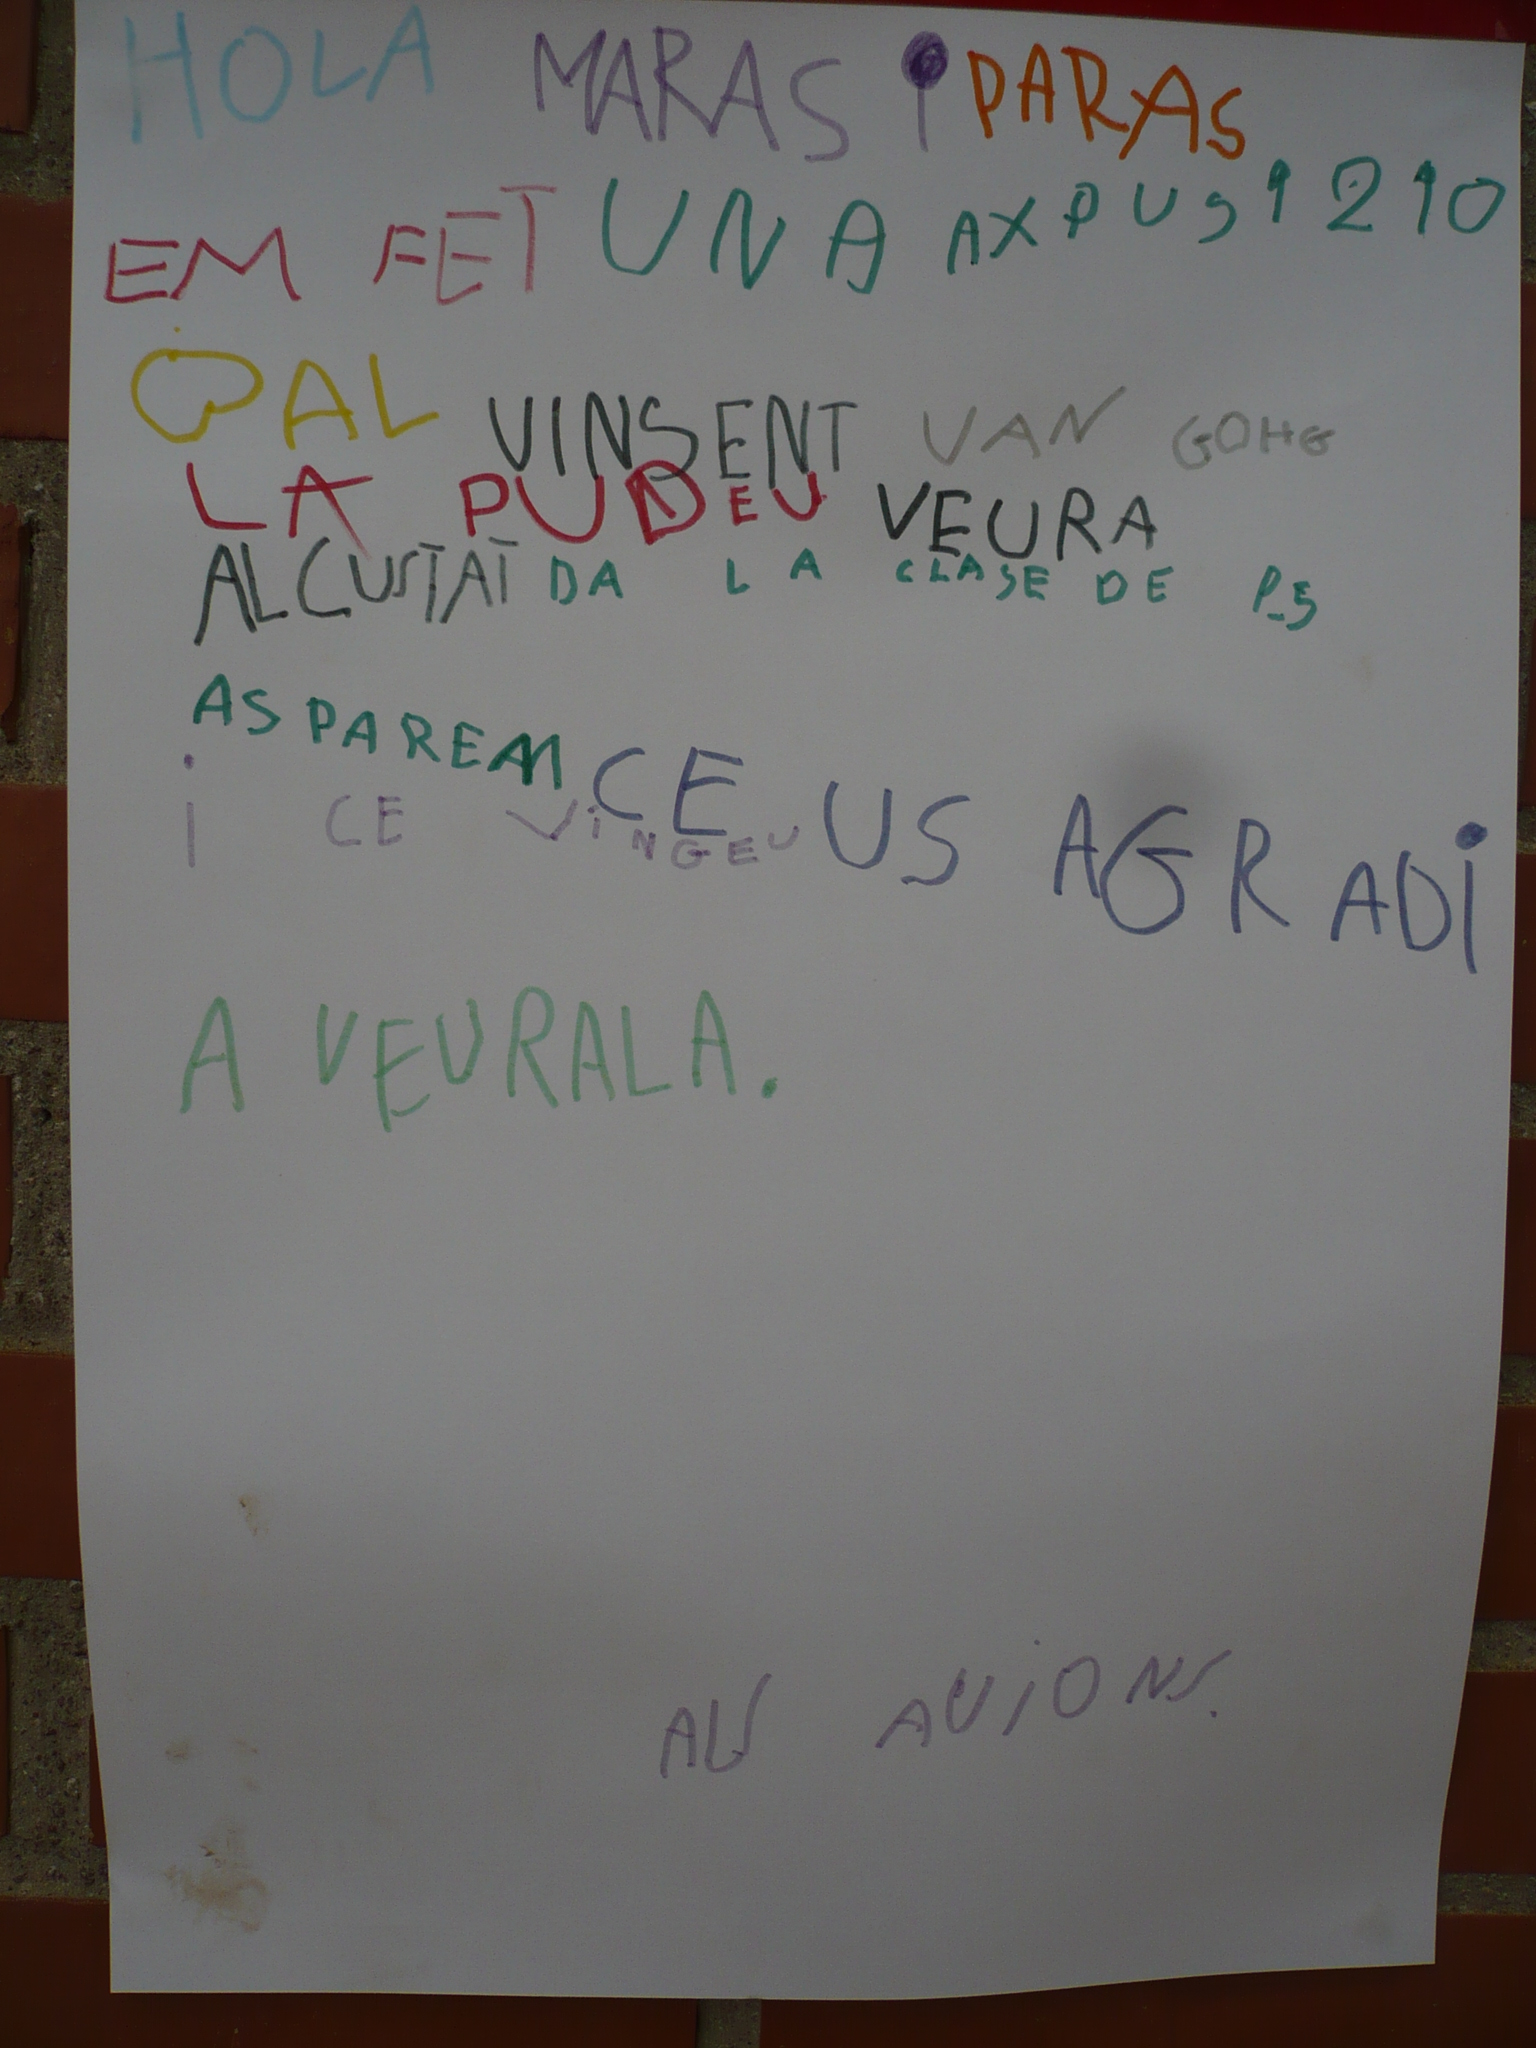 HOLA MARAS i PARAS
EM FET UNA AXPUS1210
PAL VINSENT VAN GOHG
LA PUDEU VEURA
AL CUSTAT DA LA CLASE DE P_5
ASPAREM CE US AGRADI
i CE ViNGEU
A VEURALA.
ALS AViONS.